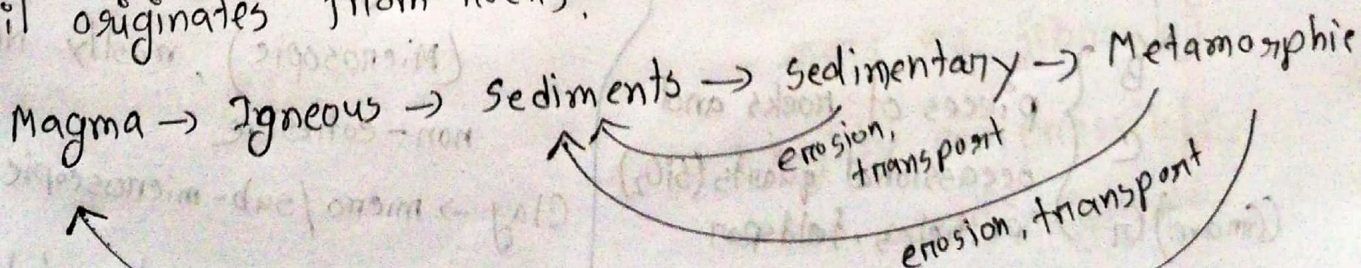 il originates from rocks.
Magma → Igneous → Sediments → Sedimentary → Metamorphic
erosion,
transport
erosion, transport